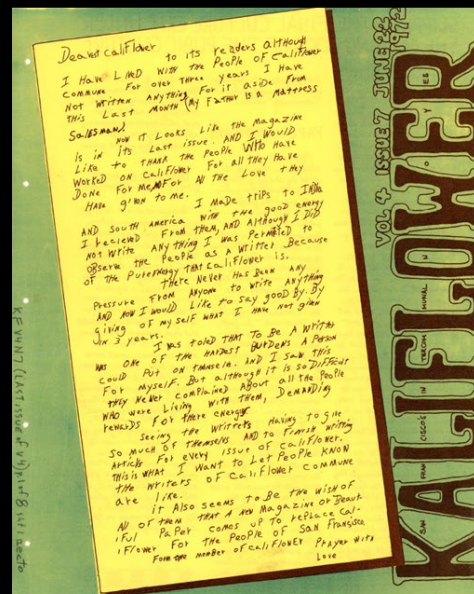 Dearest caliFlower
to its readers although
I Have LiVED With the People of CaliFlower
commune For over three years I Have
Not written Anything For it aside From
this Last Month (My Father is a Mattress
SalesMan).
Now it Looks Like the Magazine
is in its Last issue. AND I WOULD
Like to THANK the People WHO Have
Worked on CaliFlower For all they Have
Done For Me For All the Love they
Have given to me.
I Made trips to India
AND South America With the good energy
I recieved From them, AND Although I DiD
Not write Anything I was Permitted to
OBserve the People as a Writter Because
of the Pure energy that CaliFlower is.
there Never Has Been any
Pressure From Anyone to write Anything
AND Now I WOULD Like to say good By. By
giving of myself what I Have not given
in 3 years.
I was toled that to Be a Writter
was one of the Hardest Burdens A Person
could Put on themself. AND I SAW this
For Myself. But although it is so Difficult
they Never Complained About all the People
WHO were Living With them, Demanding
rewards For there energy.
Seeing the Writters Having to give
So Much of Themselves AND to Finnish Writting
Article For every issue of CaliFlower.
this is what I Want to Let People KNOW
the Writers of CaliFlower commune
are like.
it Also seems to Be the wish of
All of them that A New Magazine or Beaut
iFul PaPer comes up to replace Cal-
iFlower For the People of San Francisco
From one member of CaliFlower Prayer With
Love
VOL 4 ISSUE 7 JUNE 22 1972
KALIFLOWER
SAN FRAN CISCO'S IN TERCOM MUNAL N W S Y ES
KFV4N7 (LAST issue of V4)